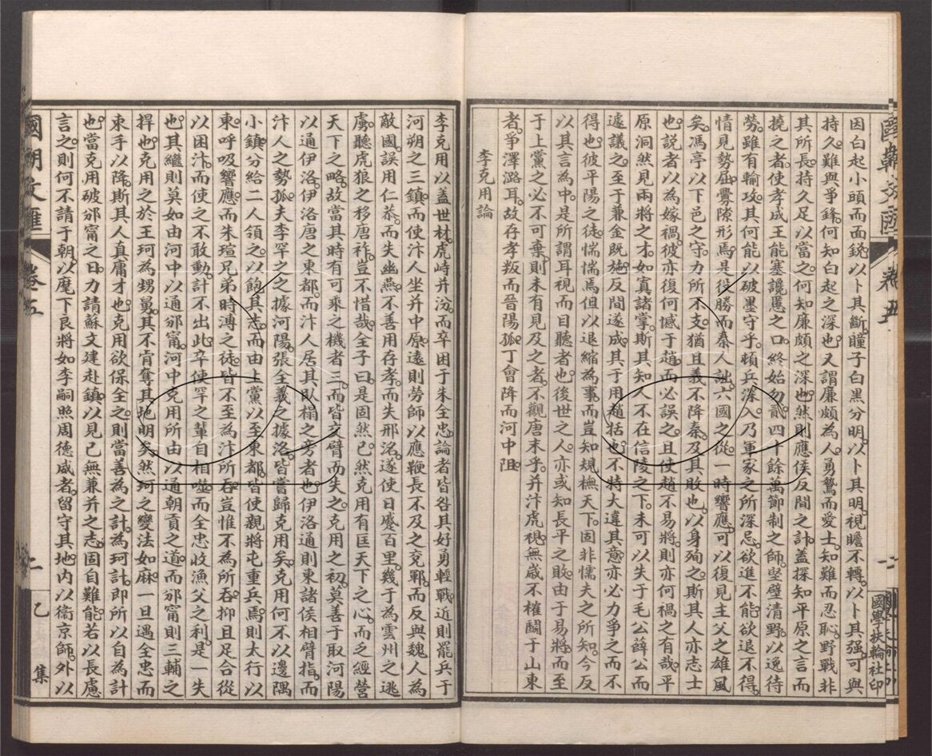 國朝文匯 卷五 一 國學扶輪社印
因白起小頭而面銳以卜其斷瞳子白黑分明以卜其明視瞻不轉以卜其强可與
持久難與爭鋒何知白起之深也又謂廉頗為人勇鷙而愛士知難而忍恥野戰非
其所長持久足以當之何知廉頗之深也然則應侯反間之計蓋探知平原之言而
撓之者使孝成王能塞讒慝之口終始勿貳四十餘萬節制之師堅壁清野以逸待
勞雖有輸攻其何能以破墨守乎頓兵深入乃軍家之所深忌欲進不能欲退不得
情見勢屈釁隙形焉是役勝而秦人詘六國之從一時響應可以復見主父之雄風
矣馮亭以下邑之守力所不支猶且義不降秦及其敗也以身殉之斯其人亦志士
也說者以為嫁禍彼亦復何憾于趙而必誤之且使趙不易將則亦何禍之有哉平
原洞然見兩將之才如寘諸掌斯其知人不在信陵之下未可以失于毛公薛公而
遽議之至于兼金既施反間遂成其于用趙括也不特大違其意亦必力爭之而不
得也彼平陽之徒惴惴焉但以退縮為事而豈知規橅天下固非懦夫之所知今反
以其言為中是所謂耳視而目聽者也後世之人亦或知長平之敗由于易將而至
于上黨之必不可棄則未有見及之者不觀唐末乎并汴虎視無歲不榷鬭于山東
者爭澤潞耳故存孝叛而晉陽孤丁會降而河中阻
李克用論
李克用以蓋世材虎峙并汾而卒困于朱全忠論者皆咎其好勇輕戰近則罷兵于
河朔之三鎮而使汴人坐并中原遠則勞師以應鞭長不及之兗鄆而反與魏人為
敵國誤用仁恭而失幽燕不善用存孝而失邢洺遂使日蹙百里幾于為雲州之逃
虜聽虎狼之移唐祚豈不惜哉全子曰是固然已然克用有匡天下之心而乏經營
天下之略故當其時有可乘之機者三而皆交臂而失之克用之初莫善于取河陽
以通伊洛伊洛唐之東都而汴人居其臥榻之旁者也伊洛通則東諸侯相臂指而
汴人之勢孤夫李罕之之據河陽張全義之據洛皆嘗歸克用矣克用何不以邊隅
小鎮分給二人領之以飽其志而由上黨以至東都皆使親將屯重兵焉則太行以
東呼吸響應而朱瑄兄弟時溥之徒皆不至為汴所吞豈惟不為所吞抑且足合從
以困汴而使之不敢動計不出此卒使罕之輩自相噬而全忠收漁父之利是一失
也其繼則莫如由河中以通邠甯河中克用所由以通朝貢之道而邠甯則三輔之
捍也克用之於王珂為甥舅其不肯奪其地明矣然珂之孌法如麻一旦遇全忠而
束手以降斯其人真庸才也克用欲保全之則當善為之計為珂計即所以自為計
也當克用破邠甯之日力請蘇文建赴鎮以見己無兼并之志固自難能若以長慮
言之則何不請于朝以麾下良將如李嗣照周德威者留守其地內以衛京師外以
國朝文匯 卷五 二 乙集